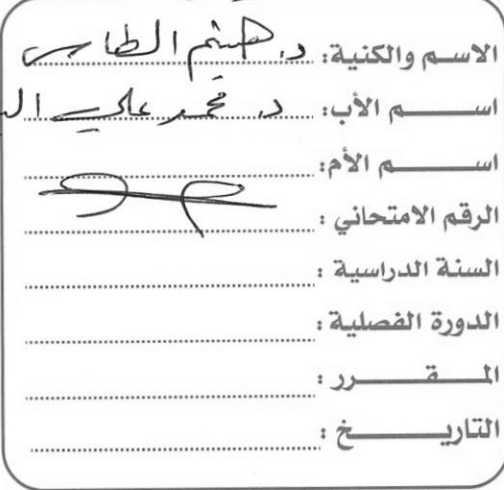 الاسم والكنية: د. هيثم الطاس
اسم الأب: د. محمد علي
اسم الأم:
الرقم الامتحاني:
السنة الدراسية:
الدورة الفصلية:
المقرر:
التاريخ: